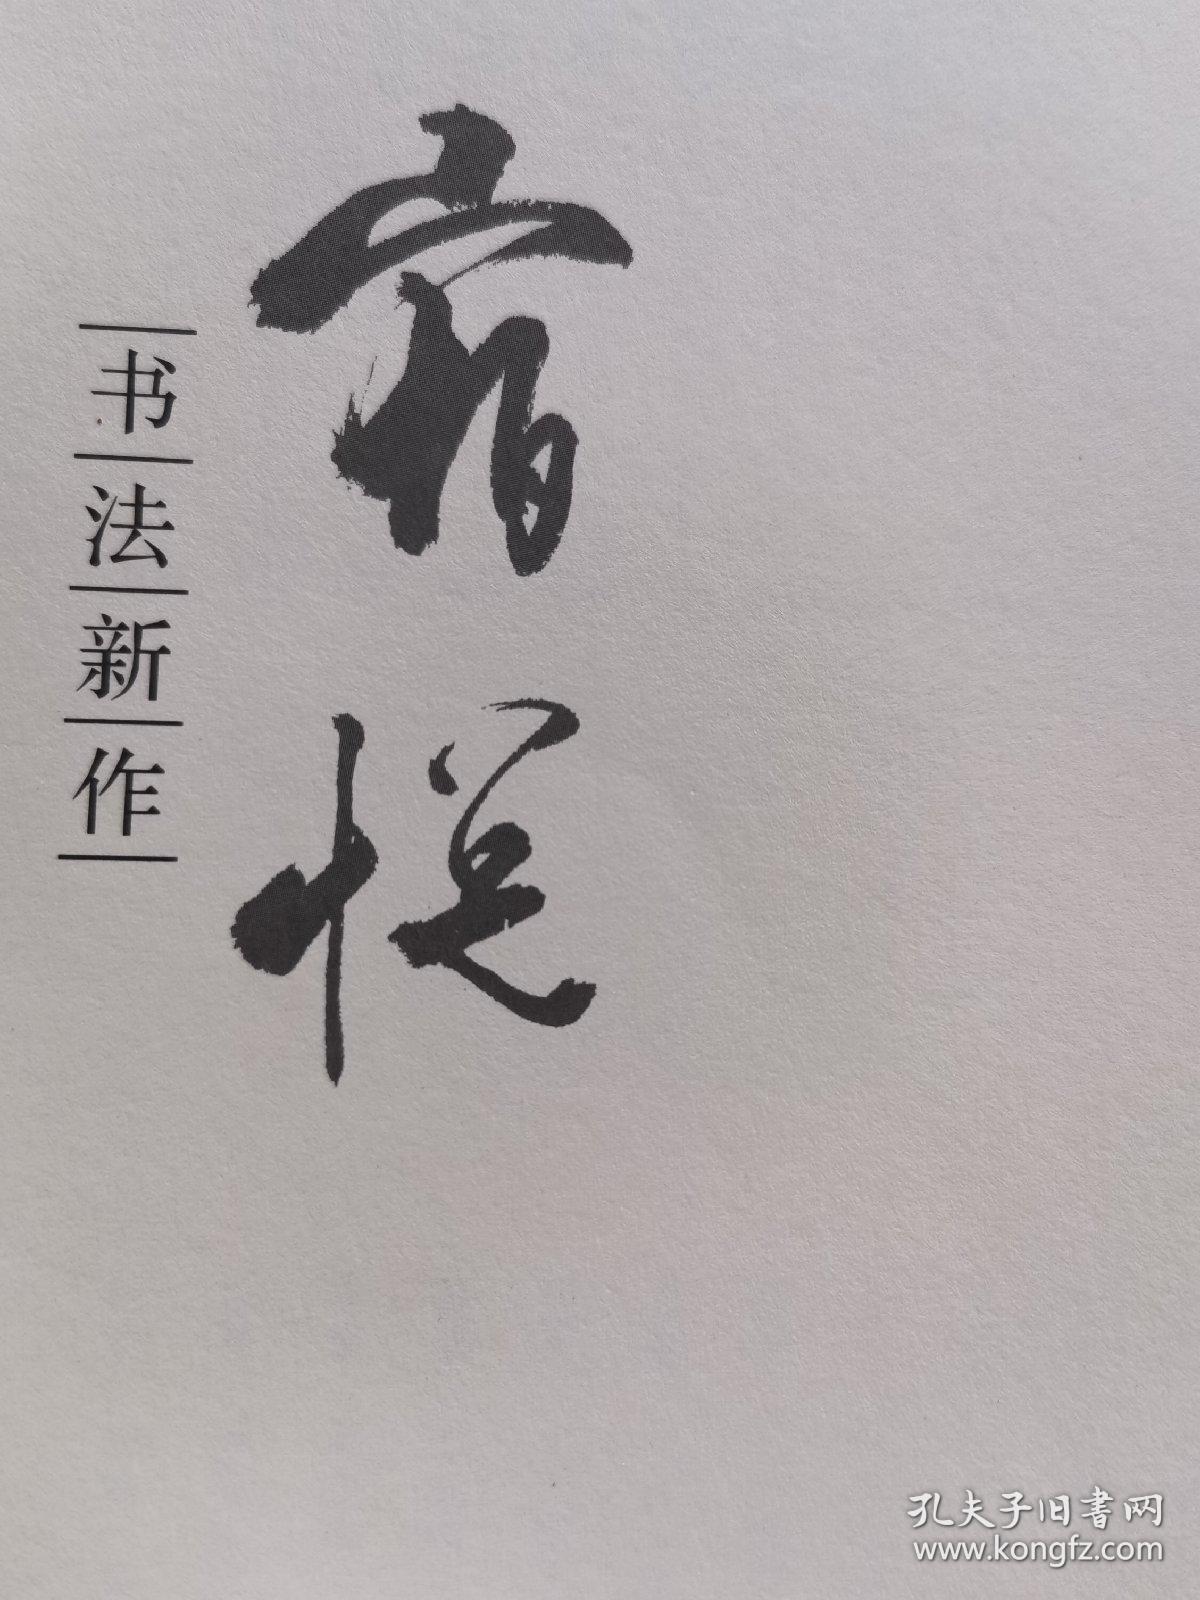 宿悦
书法新作
孔夫子旧書网
www.kongfz.com